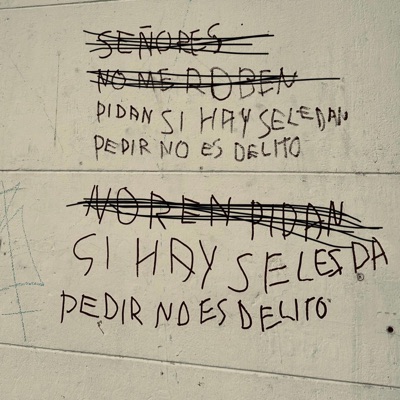 SEÑORES
NO ME ROBEN
PIDAN SI HAY SELEDAN
PEDIR NO ES DELITO
NOREN PIDAN
SI HAY SELES DA
PEDIR NO ES DELITO